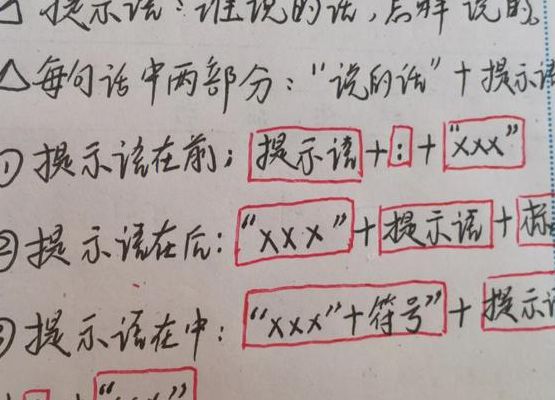 △提示语：谁说的话，怎样说的。
△每句话中两部分：“说的话”＋提示语
①提示语在前：提示语＋：＋“xxx”
②提示语在后：“xxx”＋提示语＋标
③提示语在中：“xxx”＋符号”＋提示语
“xxx”